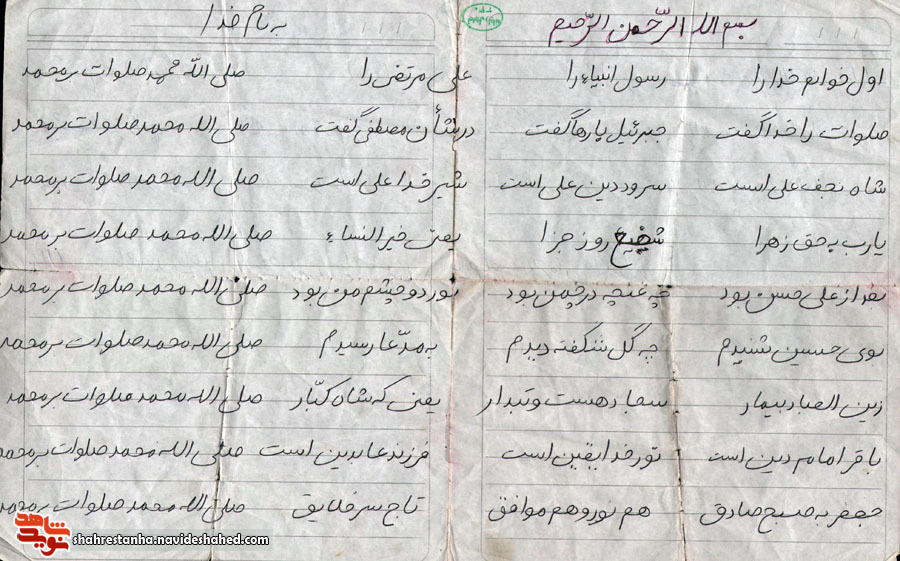 بسم الله الرّحمن الرّحیم
به نام خدا
اول خوانم خدا را رسول انبیاء را علی مرتضی را صلی الله محمد صلوات بر محمد
صلوات را خدا گفت جبرئیل بارها گفت در شأن مصطفی گفت صلی الله محمد صلوات بر محمد
شاه نجف علی است سرور دین علی است شیر خدا علی است صلی الله محمد صلوات بر محمد
یارب به حق زهرا شفیع روز جزا یعنی خیر النساء صلی الله محمد صلوات بر محمد
بعد از علی حسن بود چه غنچه در چمن بود نور دو چشم من بود صلی الله محمد صلوات بر محمد
بوی حسین شنیدم چه گل شکفته دیدم به مدّعا رسیدم صلی الله محمد صلوات بر محمد
زین العباد بیمار سجاد هست و تبدار یعنی که شاه کبّار صلی الله محمد صلوات بر محمد
باقر امام دین است نور خدا یقین است فرزند عابدین است صلی الله محمد صلوات بر محمد
جعفر به صبح صادق هم نور و هم موافق تاج سر خلایق صلی الله محمد صلوات بر محمد
نوید شاهد
shahrestanha.navideshahed.com